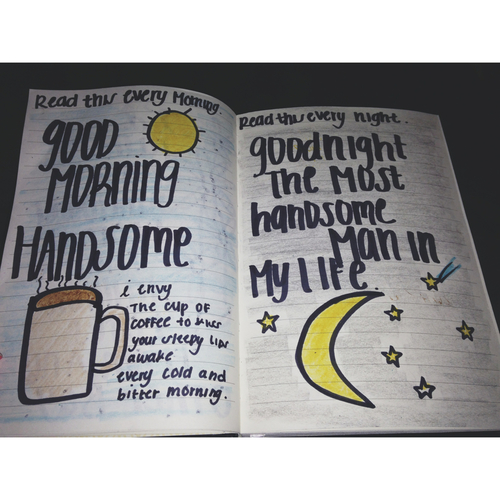 Read this every Morning.
gOOD
MORNING
HANDSOME
i envy
The cup OF
coffee to kiss
your sleepy lips
awake
every cold and
bitter morning.
Read this every night.
goodnight
The MOst
handsome
Man in
My life